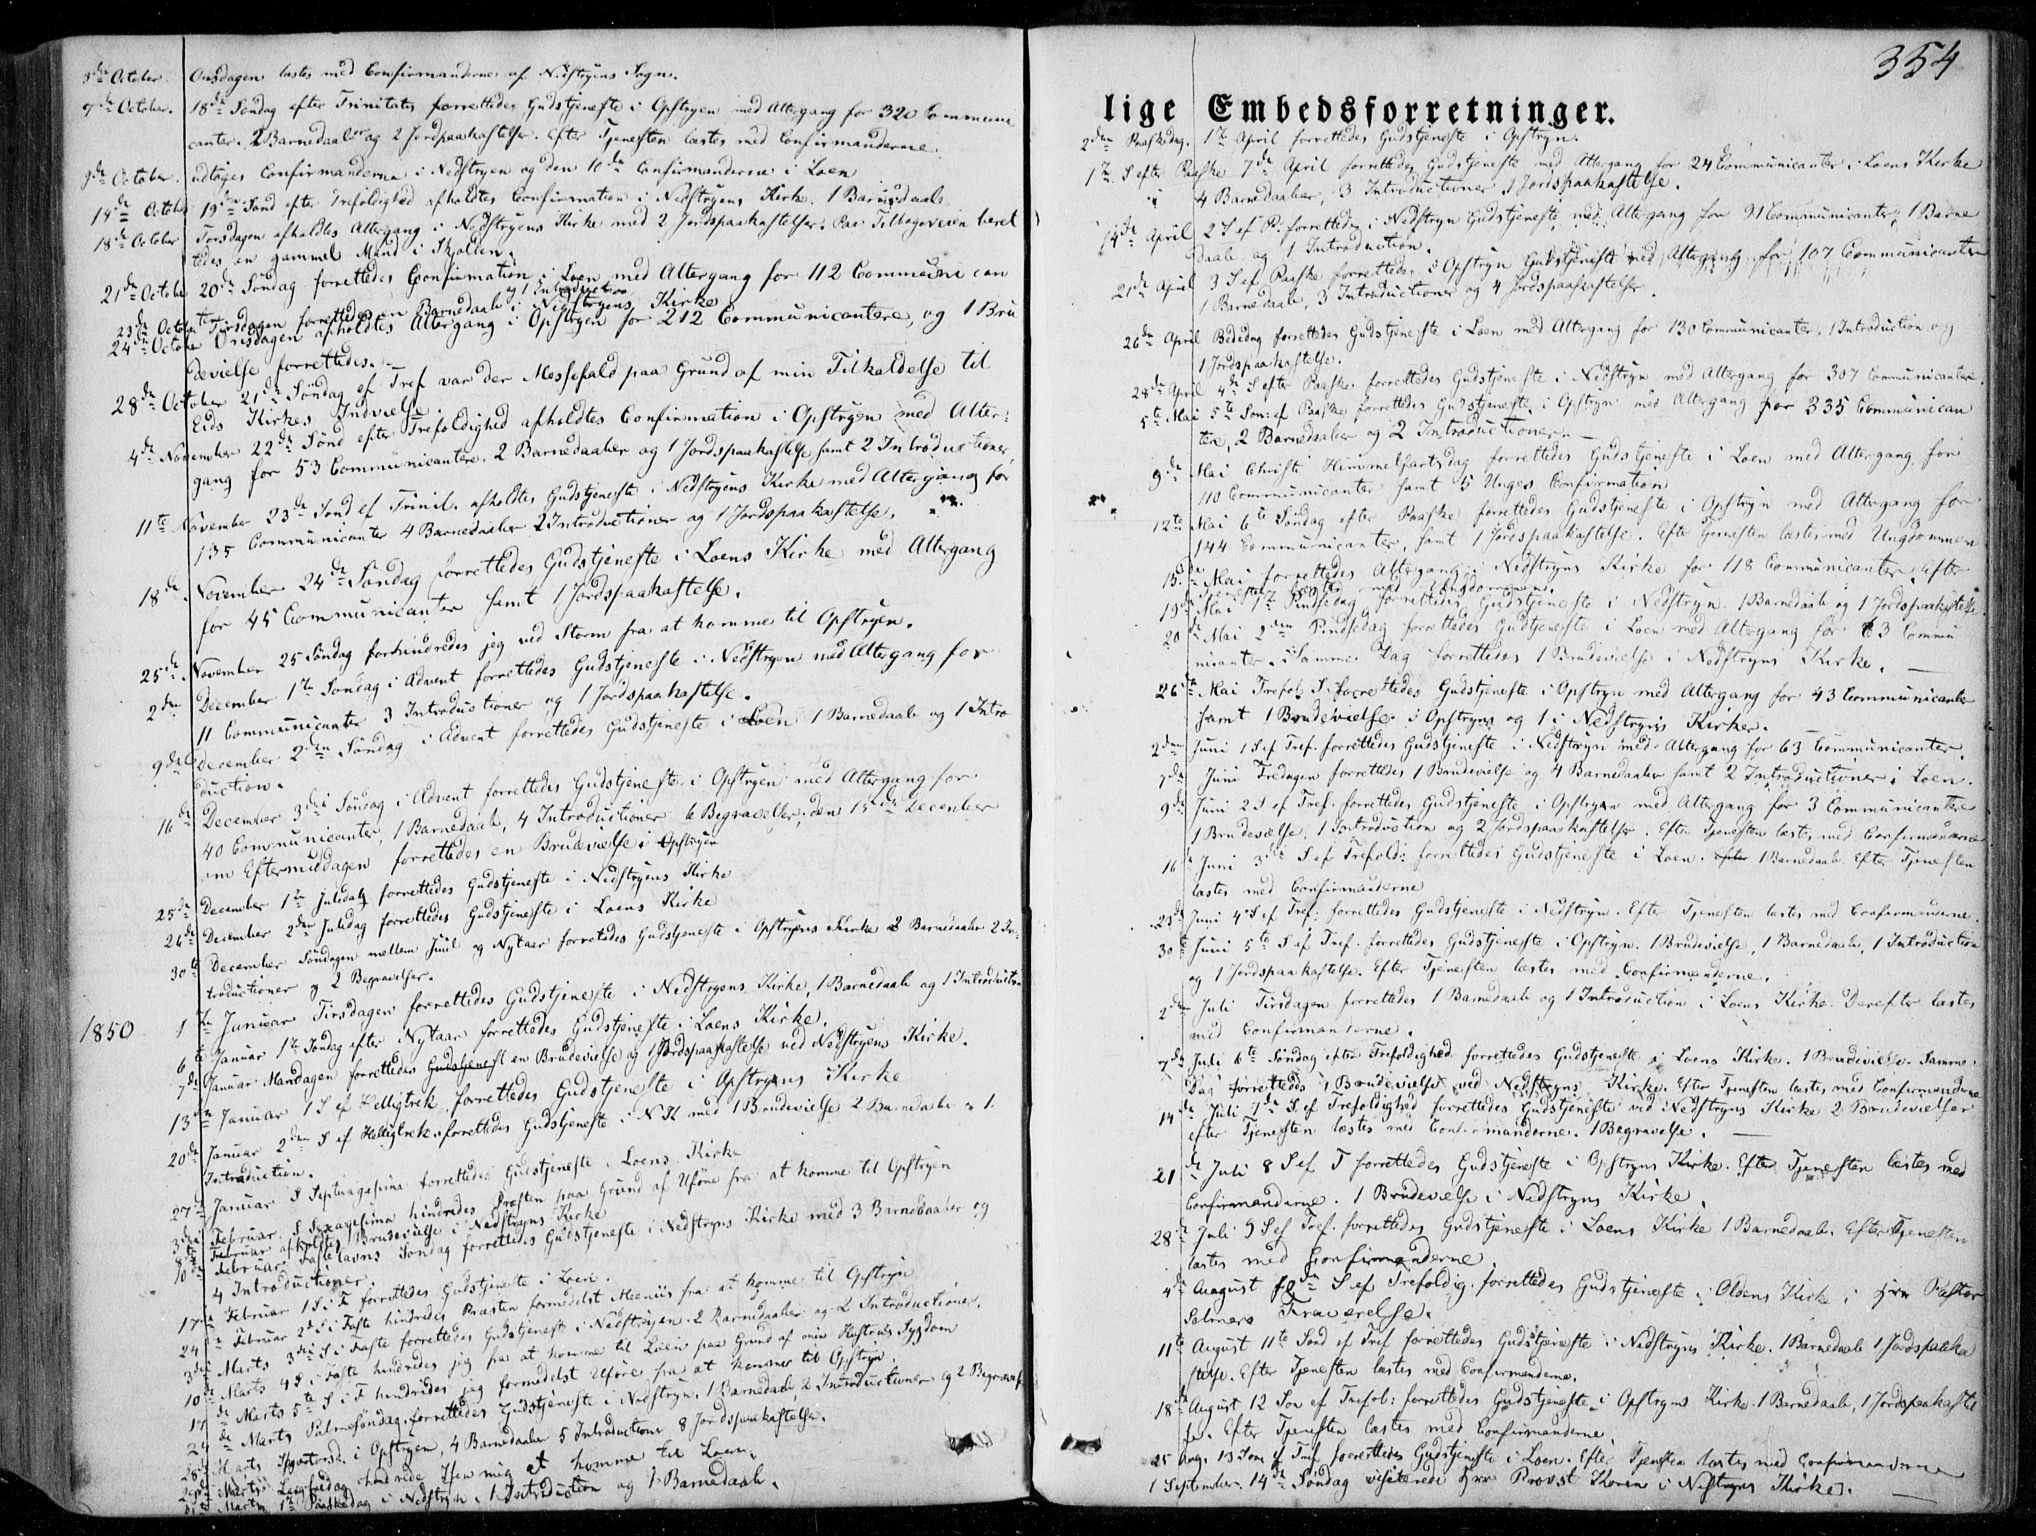 3die October. Onsdagen læstes med Confirmanderne af Nedstryens Sogn.
7de October. 18de Søndag efter Trinitatis forrettedes Gudstjeneste i Opstryen med Altergang for 320 Commune
canter. 2 Barnedaaber og 2 Jordpaakastelser. Efter Tjenesten læstes med Confirmanderne.
9de October. udtoges Confirmanderne i Nedstryen og den 10de Confirmanderne i Loen
14de October 19de Sønd efter Trefoldighed afholdtes Confirmation i Nedstryens Kirke. 1 Barnedaab.
18de October Torsdagen afholdtes Altergang i Nedstryens Kirke med 2 Jordspaakastelser. Paa Tilbageveien beret
tedes en gammel Mand i Skollen.
21de October 20de Søndag forrettedes Confirmation i Loen med Altergang for 112 Communican
og 1 Introduction
23de October Tirsdagen forrettedes en Barnedaab i Nedstryens Kirke
24de October Onsdagen afholdtes Altergang i Opstryen for 212 Communicantere, og 1 Bru
devielse forrettedes.
28de October 21de Søndag ef Tref var der Messefald paa Grund af min Tilkaldelse til
Eids Kirkes Indvielse.
4de November 22de Sønd efter Trefoldighed afholdtes Confirmation i Opstryen med Alter-
gang for 53 Communicantere. 2 Barnedaaber og 1 Jordspaakastelse samt 2 Introductioner
11te November 23de Sønd ef Trinit. afholdtes Gudstjeneste i Nedstryens Kirke med Altergang for
135 Communicanter 4 Barnedaaber 2 Introductioner og 1 Jordspaakastelse.
18de November 24de Søndag forrettedes Gudstjeneste i Loens Kirke med Altergang
for 45 Communicanter samt 1 Jordspaakastelse.
25de November 25 Søndag forhindredes jeg ved Storm fra at komme til Opstryen.
2den December 1te Søndag i Advent forrettedes Gudstjeneste i Nedstryen med Altergang for
11 Communicanter 3 Introductioner og 1 Jordspaakastelse.
9de December 2den Søndag i Advent forrettedes Gudstjeneste i Loen 1 Barnedaab og 1 Intro
duction.
16de December 3die Søndag i Advent forrettedes Gudstjeneste i Opstryen med Altergang for
40 Communicanter, 1 Barnedaab, 4 Introductioner 6 Begravelser; den 15de December
om Eftermiddagen forrettedes en Brudevielse i Opstryen
25de December 1te Juledag forrettedes Gudstjeneste i Nedstryens Kirke
26de December 2den Juledag forrettedes Gudstjeneste i Loens Kirke
30te December Søndagen mellem Juul og Nytaar forrettedes Gudstjeneste i Opstryens Kirke 2 Barnedaaber 2 In-
troductioner og 2 Begravelser.
1850 1te Januar Tirsdagen forrettedes Gudstjeneste i Nedstryens Kirke, 1 Barnedaab og 1 Introduction
6te Januar 1te Søndag efter Nytaar forrettedes Gudstjeneste i Loens Kirke.
7de Januar Mandagen forrettedes Gudstjenest en Brudevielse og 1 Jordspaakastelse ved Nedstryens Kirke.
13de Januar 1 S ef Helligtrek. forrettedes Gudstjeneste i Opstryens Kirke
20de Januar 2den S ef Helligtrek. forrettedes Gudstjeneste i N K med 1 Brudevielse 2 Barnedaaber og 1
Introduction.
27de Januar S Septuagesima forrettedes Gudstjeneste i Loens Kirke
3die Februar S Sexagesima hindredes Præsten paa Grund af Uføre fra at komme til Opstryen
8de Februar afholdtes Brudevielse i Nedstryns Kirke
10de Februar Fastelavns Søndag forrettedes Gudstjeneste i Nedstryns Kirke med 3 Barnedaaber og
4 Introductioner.
17de Februar 1 S i F forrettedes Gudstjeneste i Loen.
24de Februar 2d S i Faste hindredes Præsten formedelst Meeniis fra at komme til Opstryn
3die Marts 3die S i Faste forrettedes Gudstjeneste i Nedstryen. 2 Barnedaaber og 2 Introductioner.
10de Marts 4 S i Faste hindredes jeg fra at komme til Loen paa Grund af min Hustrues Sygdom
17de Marts 5te S i F hindredes jeg formedelst Uføre fra at komme til Opstryn.
24de Marts Palmesøndag forrettedes Gudstjeneste i Nedstryn. 1 Barnedaab 2 Introductioner og 2 Begravels
28de Marts Skjærtorsd. i Opstryen, 4 Barnedaaber 5 Introductioner 8 Jordspaakastelse.
29de Marts Langfredag hindrede Isen mig at komme til Loen.
31te Marts 1te Paaskedag i Nedstryn. 1 Introduction og 1 Barnedaab.
354
lige Embedsforretninger.
2den Paaskedag. 1te April forrettedes Gudstjeneste i Opstryn.
1te S efter Paaske 7de April forrettedes Gudstjeneste med Altergang for 24 Communicanter i Loens Kirke
4 Barnedaaber, 3 Introductioner 1 Jordspaakastelse.
14de April 2 S ef P. forrettedes i Nedstryn Gudstjeneste med Altergang for 91 Communicanter, 1 Barne
daab og 1 Introduction.
21de April 3 S ef Paaske forrettedes i Opstryn Gudstjeneste med Altergang for 107 Communicanter
1 Barnedaab, 3 Introductioner og 4 Jordspaakastelser.
26de April Bededag forrettedes Gudstjeneste i Loen med Altergang for 130 Communicanter. 1 Introduction og
1 Jordspaakastelse.
28de April 4de S efter Paaske forrettedes Gudstjeneste i Nedstryn med Altergang for 307 Communicantere.
5te Mai 5te Søn: ef Paaske forrettedes Gudstjeneste i Opstryn med Altergang for 335 Communican
tere, 2 Barnedaaber og 2 Introductioner.
9de Mai Christi Himmelfartsdag forrettedes Gudstjeneste i Loen med Altergang for
110 Communicanter samt 5 Unges Confirmation
12te Mai 6te Søndag efter Paaske forrettedes Gudstjeneste i Opstryn med Altergang for
144 Communicanter, samt 1 Jordspaakastelse. Efter Tjenesten læstes med Ungdommen
15de Mai forrettedes Altergang i Nedstryns Kirke for 118 Communicanter. Efter
Tjenesten læstes med Ungdommen.
19de Mai 1te Pindsedag forrettedes Gudstjeneste i Nedstryn. 1 Barnedaab og 1 Jordspaakastelse
20de Mai 2den Pindsedag forrettedes Gudstjeneste i Loen med Altergang for 63 Commu
nicanter. Samme Dag forrettedes 1 Brudevielse i Nedstryns Kirke.
26te Mai Trefol: S. forrettedes Gudstjeneste i Opstryn med Altergang for 43 Communicanter
samt 1 Brudevielse i Opstryns og 1 i Nedstryns Kirker.
2den Juni 1 S ef Tref. forrettedes Gudstjeneste i Nedstryn med Altergang for 63 Communicanter.
7de Juni Fredagen forrettedes 1 Brudevielse og 4 Barnedaaber samt 2 Introductioner i Loen.
9de Juni 2 S ef Tref. forrettedes Gudstjeneste i Opstryn med Altergang for 3 Communicantere
1 Brudevielse, 1 Introduction og 2 Jordspaakastelser. Efter Tjenesten læstes med Confirmanderne
16de Juni 3die S ef Trefold: forrettedes Gudstjeneste i Loen. 1 Barnedaab. Efter Tjenesten
læstes med Confirmanderne
23de Juni 4 S ef Tref. forrettedes Gudstjeneste i Nedstryn. Efter Tjenesten læstes med Confirmanderne.
30te Juni 5te S ef Tref. forrettedes Gudstjeneste i Opstryn. 1 Brudevielse, 1 Barnedaab, 1 Introduction
og 1 Jordspaakastelse. Efter Tjenesten læstes med Confirmanderne.
2den Juli Tirsdagen forrettedes 1 Barnedaab og 1 Introduction i Loens Kirke. Derefter læstes
med Confirmanderne.
7de Juli 6te Søndag efter Trefoldighed forrettedes Gudstjeneste i Loens Kirke. 1 Brudevielse. Samme
Dag forrettedes 1 Brudevielse ved Nedstryns Kirke. Efter Tjenesten læstes med Confirmanderne
14de Juli 7de S. ef Trefoldighed forrettedes Gudstjeneste ved Nedstryns Kirke 2 Brudevielser
efter Tjenesten læstes med Confirmanderne. 1 Begravelse.
21de Juli 8 S ef T forrettedes Gudstjeneste i Opstryns Kirke. Efter Tjenesten læstes med
Confirmanderne. 1 Brudevielse i Nedstryns Kirke.
28de Juli 9 S ef Tref. forrettedes Gudstjeneste i Loens Kirke 1 Barnedaab. Efter Tjenesten
læstes med Confirmanderne
4de August 10de S ef Trefoldig. forrettedes Gudstjeneste i Oldens Kirke i Hrr Pastor
Selmers Fraværelse.
11te August 11te Sønd ef Tref forrettedes Gudstjeneste i Nedstryns Kirke. 1 Barnedaab 1 Jordspaaka
stelse. Efter Tjenesten læstes med Confirmanderne.
18de August 12 Søn ef Trefol: forrettedes Gudstjeneste i Opstryns Kirke. 1 Barnedaab, 1 Jordspaakaste
lse. Efter Tjenesten læstes med Confirmanderne.
25 Aug. 13 Søn ef Tref. forrettedes Gudstjeneste i Loen. Efter Tjenesten læstes med Confirmanderne
1 September. 14de Søndag visiterede Hrr Provst Koren i Nestryns Kirke.